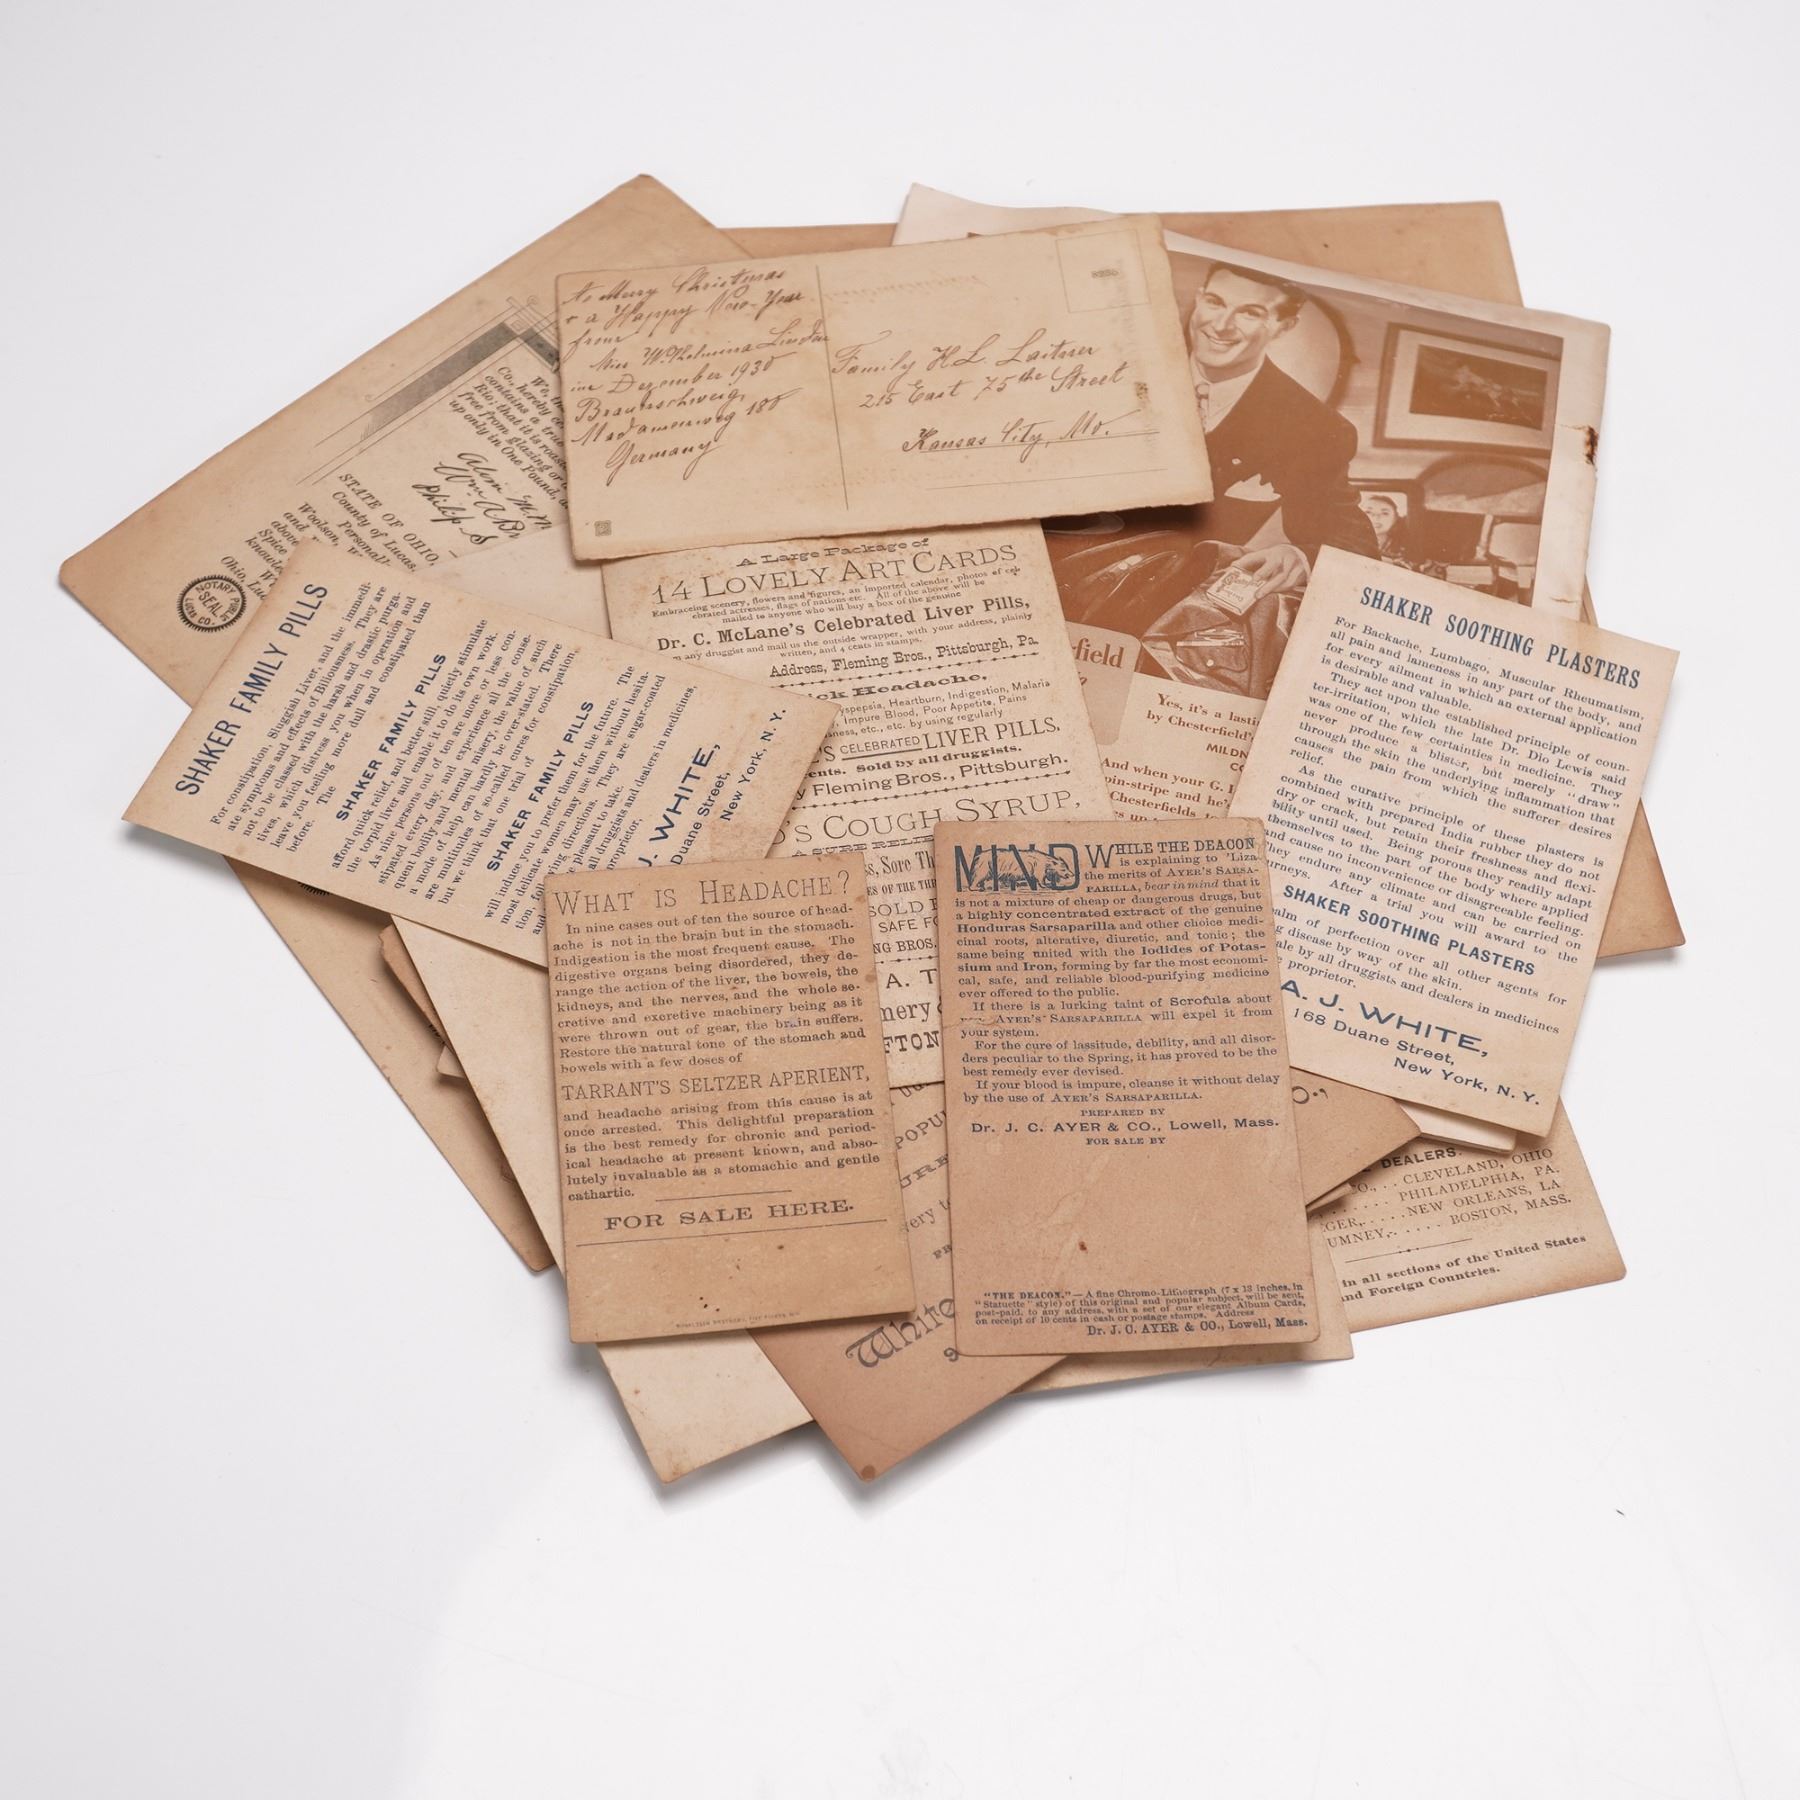 to Merry Christmas
+ a Happy New-Year
from
Miss W. Thelmina Linden
in Dezember 1930
Braunschweig,
Madamenweg 180
Germany
Family H L. Laitner
215 East 75 the Street
Kansas City, Mo.
We, the
Co., hereby ce
contains a true
Rio; that it is roas
free from glazing or
up only in One Pound,
STATE OF OHIO,
County of Lucas.
Personall
Woolson,
and
Spice
Ohio, Lu
NOTARY PUBLIC
SEAL
LUCAS CO.
SHAKER FAMILY PILLS
For constipation, Sluggish Liver, and the immedi-
ate symptoms and effects of Biliousness. They are
not to be classed with the harsh and drastic purga-
tives, which distress you when in operation and
leave you feeling more dull and constipated than
before. The
SHAKER FAMILY PILLS
afford quick relief, and better still, quietly stimulate
the torpid liver and enable it to do its own work.
As nine persons out of ten are more or less con-
stipated every day, and experience all the conse-
quent bodily and mental misery, the value of such
a mode of help can hardly be over-stated. There
are multitudes of so-called cures for constipation,
but we think that one trial of
SHAKER FAMILY PILLS
will induce you to prefer them for the future. The
most delicate women may use them without hesita-
tion, following directions. They are sugar-coated
and pleasant to take.
all druggists and dealers in medicines,
proprietor,
J. WHITE,
Duane Street,
New York, N. Y.
A Large Package of
14 LOVELY ART CARDS
Embracing scenery, flowers and figures, an imported calendar, photos of cel-
ebrated actresses, flags of nations etc. All of the above will be
mailed to anyone who will buy a box of the genuine
Dr. C. McLane's Celebrated Liver Pills,
any druggist and mail us the outside wrapper, with your address, plainly
written, and 4 cents in stamps.
Address, Fleming Bros., Pittsburgh, Pa.
ck Headache,
yspepsia, Heartburn, Indigestion, Malaria
, Impure Blood, Poor Appetite, Pains
ness, etc., etc. by using regularly
'S CELEBRATED LIVER PILLS.
ents. Sold by all druggists.
y Fleming Bros., Pittsburgh.
'S COUGH SYRUP,
A SURE RELIE
s, Sore Th
ES OF THE THR
SOLD
SAFE FO
NG BROS.
A. T
mery
FTON
field
Yes, it's a lasti
by Chesterfield'
MILDN
And when your G. I
pin-stripe and he'
Chesterfields,
SHAKER SOOTHING PLASTERS
For Backache, Lumbago, Muscular Rheumatism,
all pain and lameness in any part of the body, and
for every ailment in which an external application
is desirable and valuable.
They act upon the established principle of coun-
ter-irritation, which the late Dr. Dio Lewis said
was one of the few certainties in medicine. They
never produce a blister, but merely "draw"
through the skin the underlying inflammation that
causes the pain from which the sufferer desires
relief.
As the curative principle of these plasters is
combined with prepared India rubber they do not
dry or crack, but retain their freshness and flexi-
bility until used. Being porous they readily adapt
themselves to the part of the body where applied
and cause no inconvenience or disagreeable feeling.
They endure any climate and can be carried on
urneys. After a trial you will award to the
SHAKER SOOTHING PLASTERS
alm of perfection over all other agents for
g disease by way of the skin.
ale by all druggists and dealers in medicines
e proprietor.
A. J. WHITE,
168 Duane Street,
New York, N. Y.
WHAT IS HEADACHE?
In nine cases out of ten the source of head-
ache is not in the brain but in the stomach.
Indigestion is the most frequent cause. The
digestive organs being disordered, they de-
range the action of the liver, the bowels, the
kidneys, and the nerves, and the whole se-
cretive and excretive machinery being as it
were thrown out of gear, the brain suffers.
Restore the natural tone of the stomach and
bowels with a few doses of
TARRANT'S SELTZER APERIENT,
and headache arising from this cause is at
once arrested. This delightful preparation
is the best remedy for chronic and period-
ical headache at present known, and abso-
lutely invaluable as a stomachic and gentle
cathartic.
FOR SALE HERE.
MIND
WHILE THE DEACON
is explaining to 'Liza
the merits of AYER'S SARSA-
PARILLA, bear in mind that it
is not a mixture of cheap or dangerous drugs, but
a highly concentrated extract of the genuine
Honduras Sarsaparilla and other choice medi-
cinal roots, alterative, diuretic, and tonic; the
same being united with the Iodides of Potas-
sium and Iron, forming by far the most economi-
cal, safe, and reliable blood-purifying medicine
ever offered to the public.
If there is a lurking taint of Scrofula about
you, AYER'S SARSAPARILLA will expel it from
your system.
For the cure of lassitude, debility, and all disor-
ders peculiar to the Spring, it has proved to be the
best remedy ever devised.
If your blood is impure, cleanse it without delay
by the use of AYER'S SARSAPARILLA.
PREPARED BY
Dr. J. C. AYER & CO., Lowell, Mass.
FOR SALE BY
"THE DEACON."—A fine Chromo-Lithograph (7 x 13 inches, in
"Statuette" style) of this original and popular subject, will be sent,
post-paid, to any address, with a set of our elegant Album Cards,
on receipt of 10 cents in cash or postage stamps. Address
Dr. J. C. AYER & CO., Lowell, Mass.
POPU
White
DEALERS.
CO., . . CLEVELAND, OHIO
. . . . . PHILADELPHIA, PA.
GER, . . . . NEW ORLEANS, LA.
UMNEY, . . . . . BOSTON, MASS.
in all sections of the United States
nd Foreign Countries.